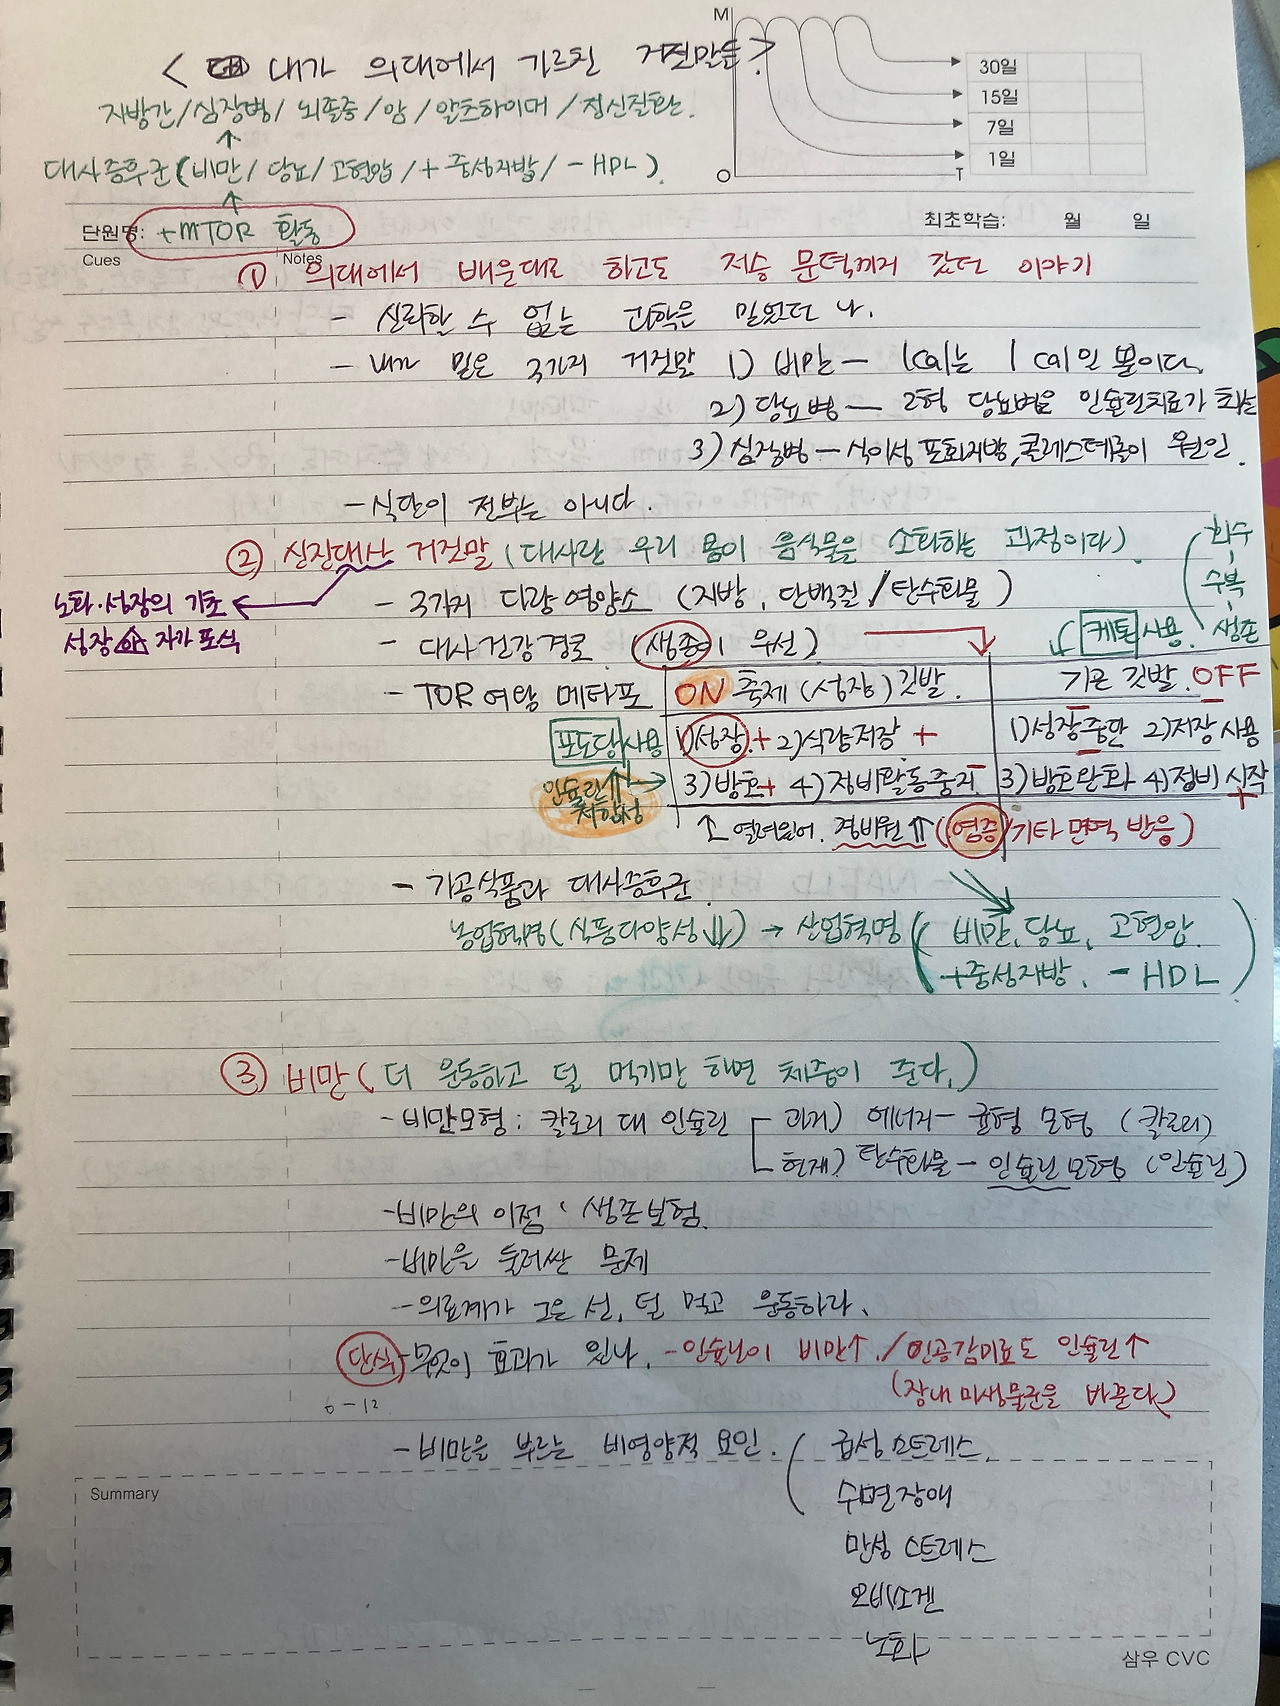 M
< 내가 의대에서 가르친 거짓말들 >
30일
15일
7일
1일
O
T
지방간 / 심장병 / 뇌졸중 / 암 / 알츠하이머 / 정신질환.
↑
대사증후군 (비만 / 당뇨 / 고혈압 / + 중성지방 / - HDL)
↑
단원명: +mTOR 활동
최초학습: 월 일
Cues
Notes
① 의대에서 배운대로 하고도 저승 문턱까지 갔던 이야기
- 신뢰할 수 없는 과학을 믿었던 나.
- 내가 믿은 3가지 거짓말 1) 비만 - 1cal는 1cal일 뿐이다.
2) 당뇨병 - 2형 당뇨병은 인슐린치료가 최선
3) 심장병 - 식이성 포화지방, 콜레스테롤이 원인.
- 식단이 전부는 아니다.
② 신진대사 거짓말 (대사란 우리 몸이 음식물을 소화하는 과정이다)
회수
수복
생존
노화·성장의 기초 ←
성장 자가포식
- 3가지 다량영양소 (지방, 단백질 / 탄수화물)
- 대사건강경로 (생존이 우선)
케톤 사용
- TOR 여왕 메타포
ON 축제 (성장) 깃발.
기근 깃발. OFF
포도당 사용
1) 성장 + 2) 식량저장 +
1) 성장중단 2) 저장 사용
인슐린⇈ →
저항성
3) 방호+ 4) 정비활동중지
3) 방호완화 4) 정비 시작
+
↑ 열려있어. 경비원⇈ (염증 / 기타 면역 반응)
- 가공식품과 대사증후군
농업혁명 (식품다양성⇊) → 산업혁명 ( 비만, 당뇨, 고혈압.
+중성지방, - HDL )
③ 비만 (더 운동하고 덜 먹기만 하면 체중이 준다.)
- 비만모형 : 칼로리 대 인슐린
과거) 에너지 - 균형 모형 (칼로리)
현재) 탄수화물 - 인슐린 모형 (인슐린)
- 비만의 이점 : 생존보험.
- 비만을 둘러싼 문제
- 의료계가 그은 선, 덜 먹고 운동하라.
단식 - 무엇이 효과가 있나. - 인슐린이 비만↑. / 인공감미료도 인슐린↑
(장내미생물군을 바꾼다)
6 - 12
- 비만을 부르는 비영양적 요인. ( 급성 스트레스.
Summary
수면장애
만성 스트레스
오비소겐
노화
삼우 CVC